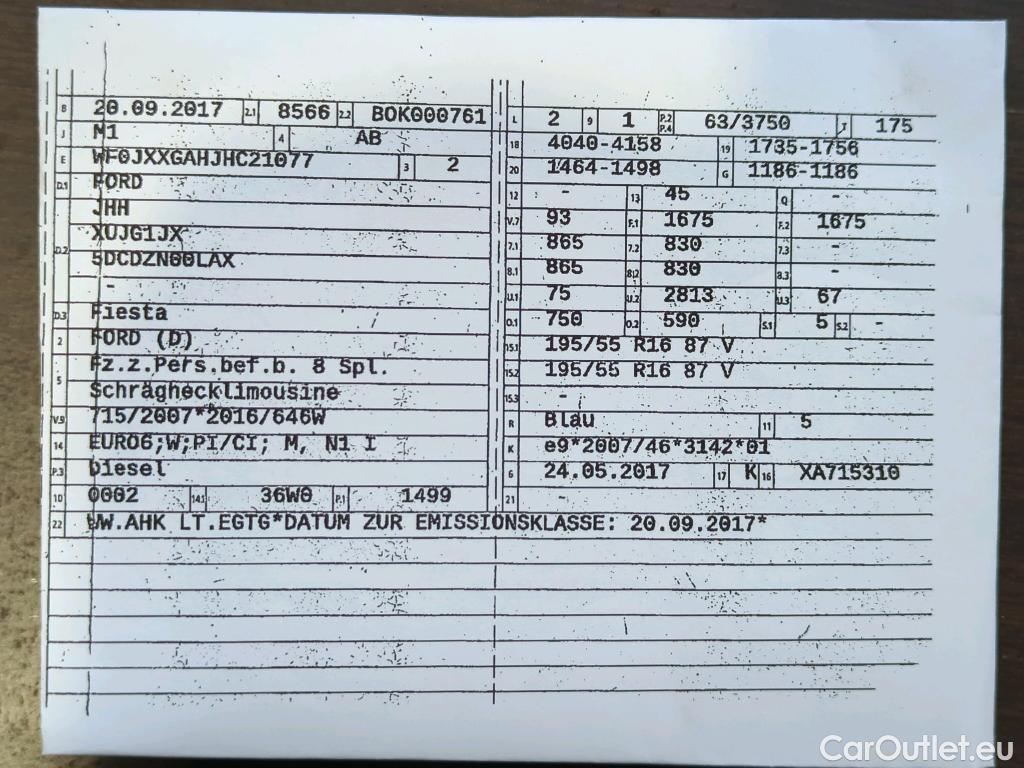 B 20.09.2017 2.1 8566 2.2 BOK000761
J M1 4 AB
E WF0JXXGAHJHC21077 3 2
D.1 FORD
JHH
XUJG1JX
D.2 5DCDZN00LAX
-
D.3 Fiesta
2 FORD (D)
Fz.z.Pers.bef.b. 8 Spl.
5 Schräghecklimousine
V.9 715/2007*2016/646W
14 EURO6;W;PI/CI; M, N1 I
P.3 Diesel
10 0002 14.1 36W0 P.1 1499
L 2 9 1 P.2 P.4 63/3750 T 175
18 4040-4158 19 1735-1756
20 1464-1498 G 1186-1186
12 - 13 45 Q -
V.7 93 F.1 1675 F.2 1675
7.1 865 7.2 830 7.3 -
8.1 865 8.2 830 8.3 -
U.1 75 U.2 2813 U.3 67
O.1 750 O.2 590 S.1 5 S.2 -
15.1 195/55 R16 87 V
15.2 195/55 R16 87 V
15.3 -
R Blau 11 5
K e9*2007/46*3142*01
6 24.05.2017 17 K 16 XA715310
21 -
22 WW.AHK LT.EGTG*DATUM ZUR EMISSIONSKLASSE: 20.09.2017*
CarOutlet.eu